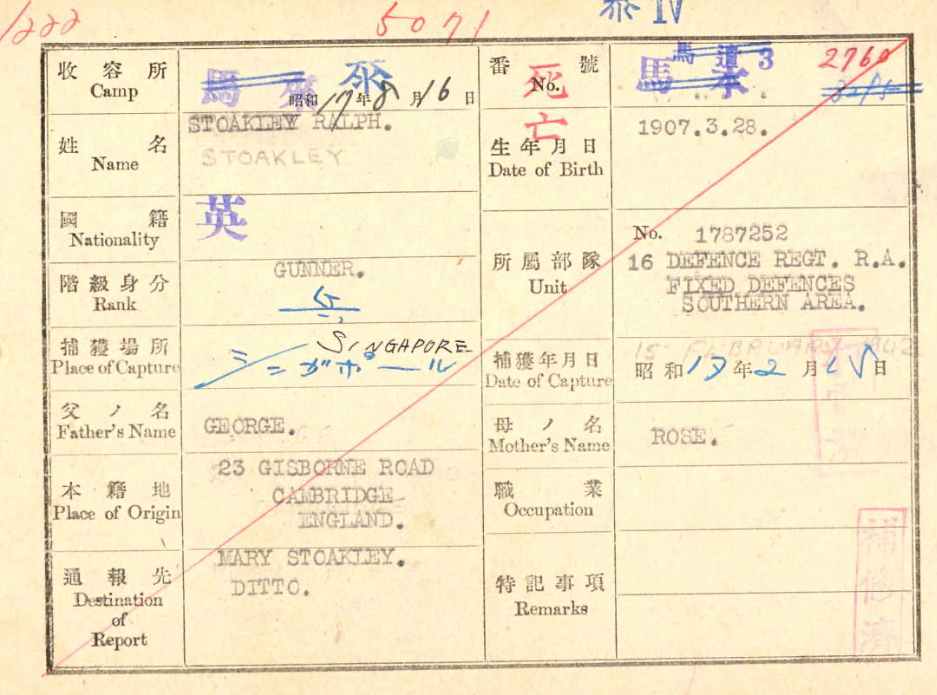 1222
5071
泰 IV
收容所
Camp
馬來 泰
昭和17年8月16日
番號
No.
死亡
馬遺3
馬本
2760
姓名
Name
STOAKLEY RALPH.
STOAKLEY
生年月日
Date of Birth
1907.3.28.
國籍
Nationality
英
所屬部隊
Unit
No. 1787252
16 DEFENCE REGT. R.A.
FIXED DEFENCES
SOUTHERN AREA.
階級身分
Rank
GUNNER.
捕獲場所
Place of Capture
SINGAPORE
シンガポール
捕獲年月日
Date of Capture
15 FEBRUARY 1942
昭和17年2月15日
父ノ名
Father's Name
GEORGE.
母ノ名
Mother's Name
ROSE.
本籍地
Place of Origin
23 GISBORNE ROAD
CAMBRIDGE
ENGLAND.
職業
Occupation
通報先
Destination
of
Report
MARY STOAKLEY.
DITTO.
特記事項
Remarks
補修濟